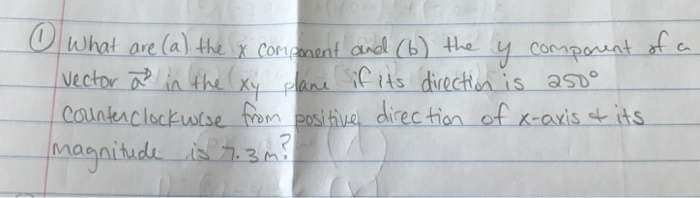 ① What are (a) the x component and (b) the y component of a
vector a⃗ in the xy plane if its direction is 250°
counterclockwise from positive direction of x-axis & its
magnitude is 7.3m?